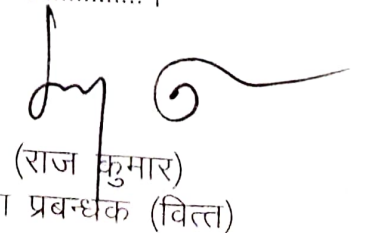 (राज कुमार)
प्रबन्धक (वित्त)